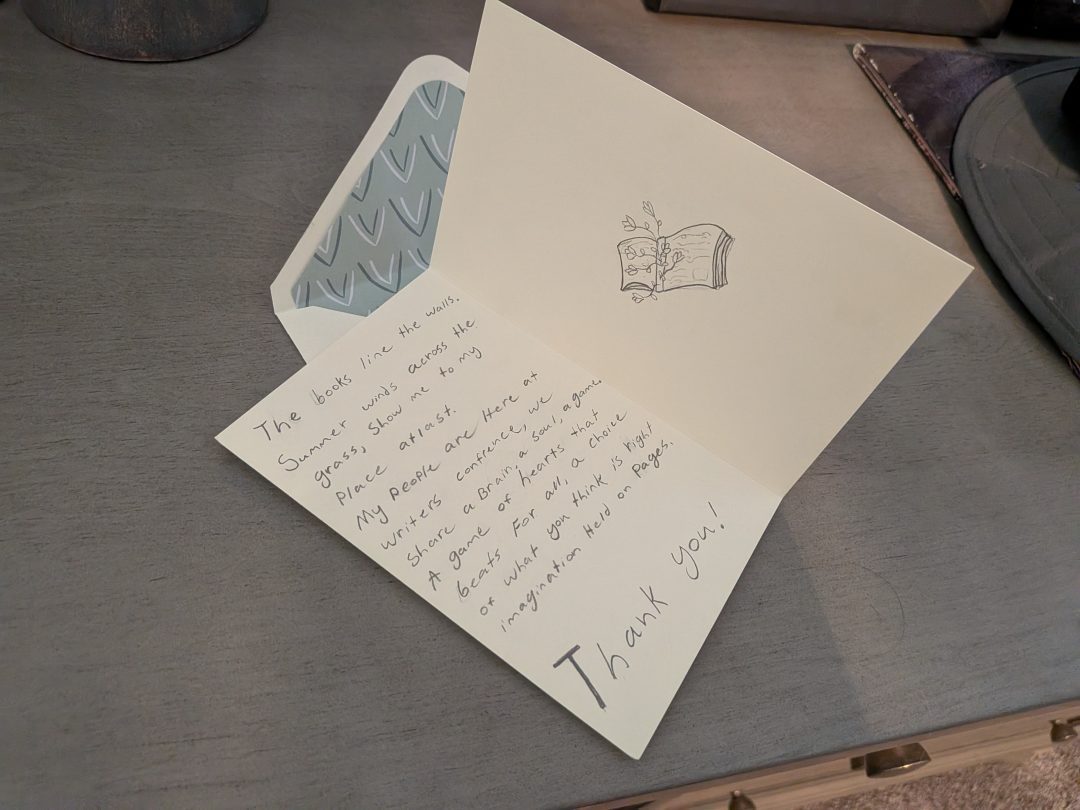 The books line the walls.
Summer winds across the
grass, Show me to my
Place atlast.
My people are Here at
writers confrence, we
Share a Brain, a soul, a game.
A game of hearts that
beats For all, a choice
of what you think is right
imagination Held on Pages.
Thank you!